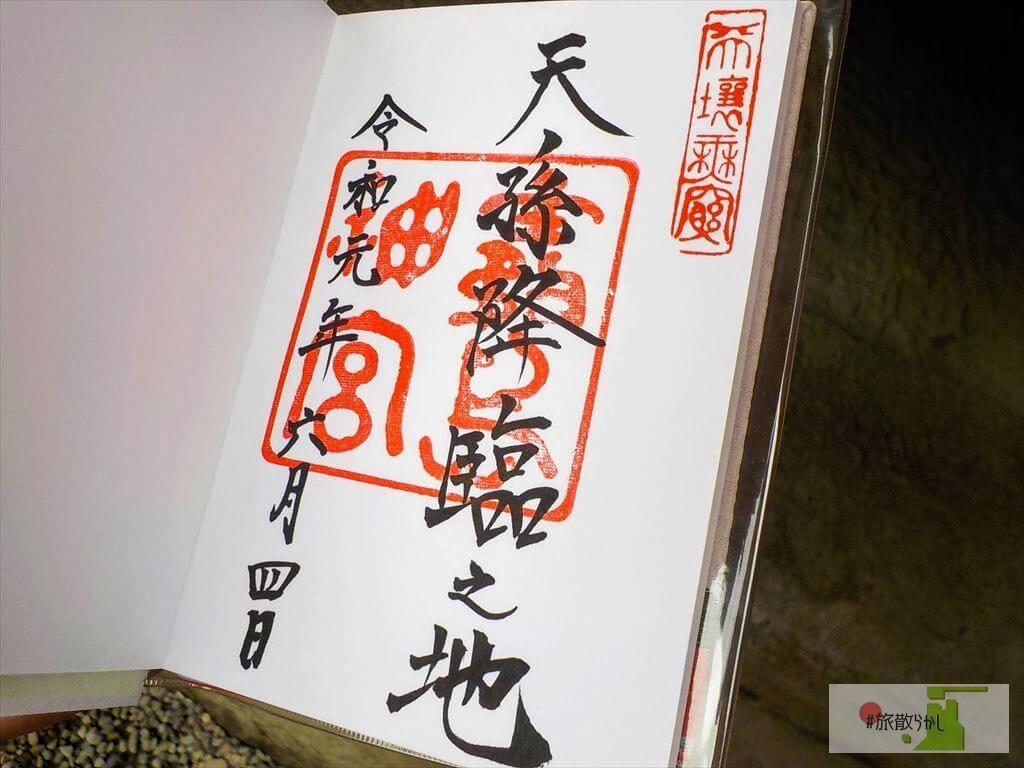 天壤無窮
天孫降臨之地
令和元年六月四日
#旅散らかし